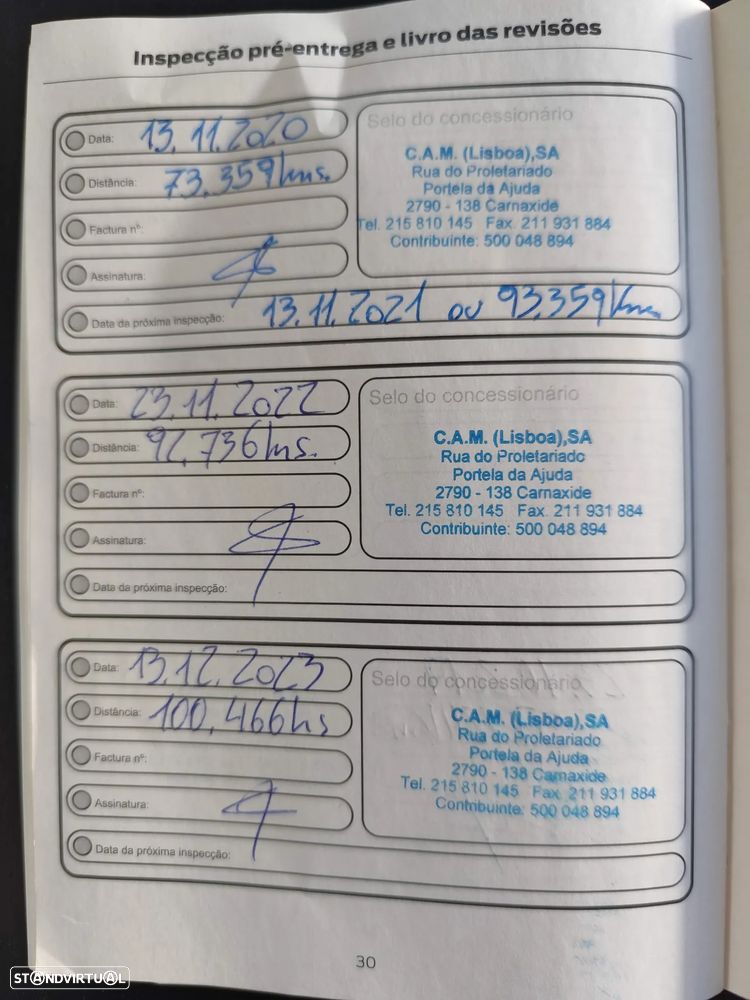 Inspecção pré-entrega e livro das revisões
Data: 13.11.2020
Distância: 73.359 kms.
Factura nº:
Assinatura:
Data da próxima inspecção: 13.11.2021 ou 93.359 Kms
Selo do concessionário
C.A.M. (Lisboa),SA
Rua do Proletariado
Portela da Ajuda
2790 - 138 Carnaxide
Tel. 215 810 145 Fax. 211 931 884
Contribuinte: 500 048 894
Data: 23.11.2022
Distância: 92.736 kms.
Factura nº:
Assinatura:
Data da próxima inspecção:
Selo do concessionário
C.A.M. (Lisboa),SA
Rua do Proletariado
Portela da Ajuda
2790 - 138 Carnaxide
Tel. 215 810 145 Fax. 211 931 884
Contribuinte: 500 048 894
Data: 13.12.2023
Distância: 100.466 ks
Factura nº:
Assinatura:
Data da próxima inspecção:
Selo do concessionário
C.A.M. (Lisboa),SA
Rua do Proletariado
Portela da Ajuda
2790 - 138 Carnaxide
Tel. 215 810 145 Fax. 211 931 884
Contribuinte: 500 048 894
30
STANDVIRTUAL